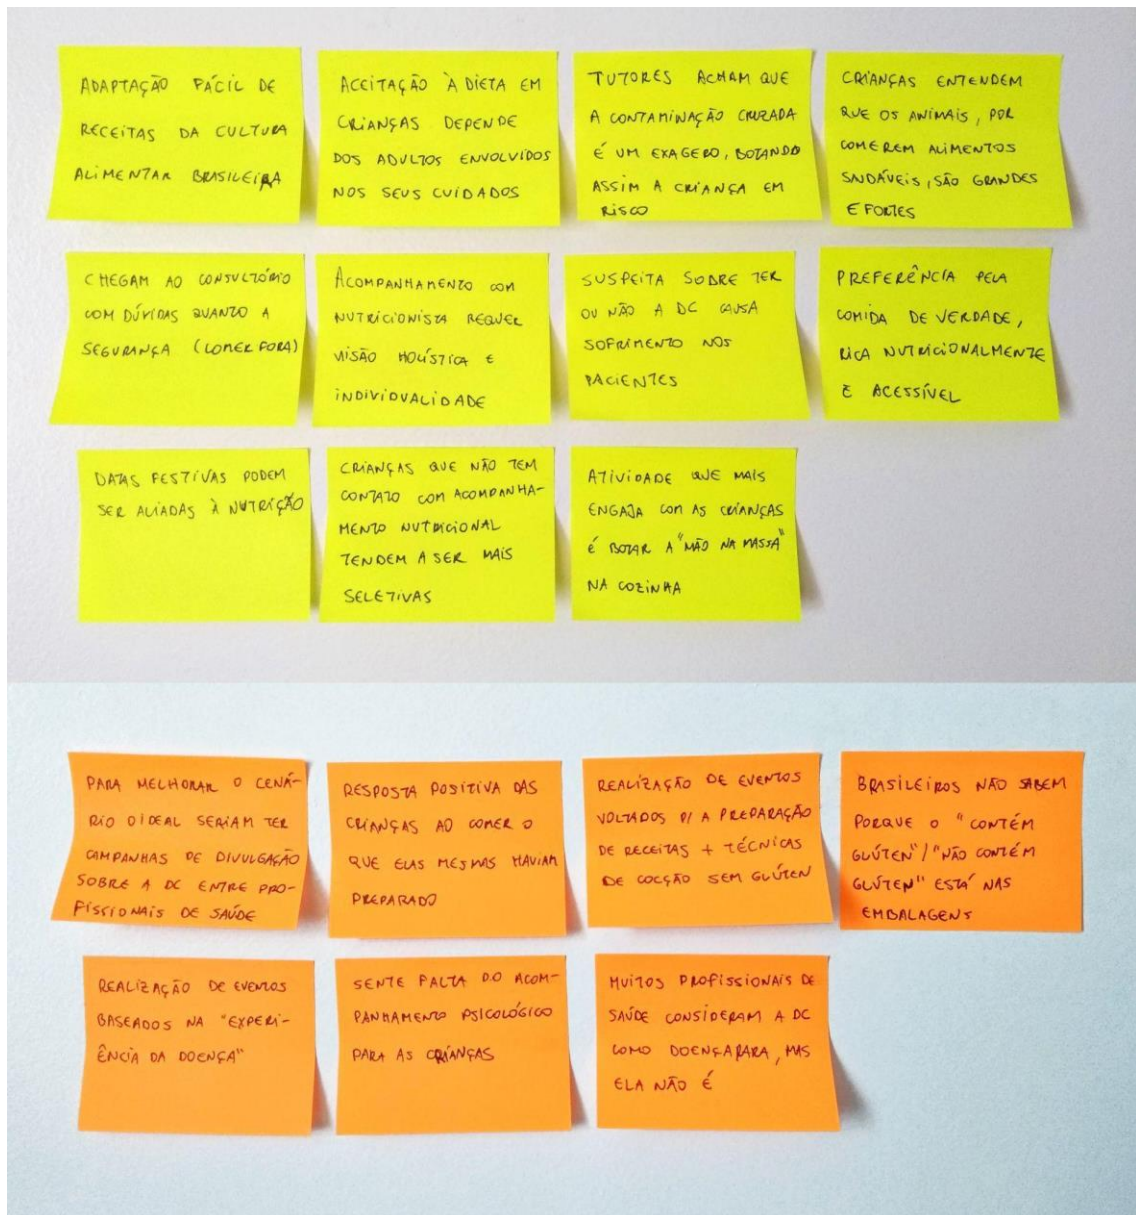 ADAPTAÇÃO FÁCIL DE
RECEITAS DA CULTURA
ALIMENTAR BRASILEIRA
ACEITAÇÃO À DIETA EM
CRIANÇAS DEPENDE
DOS ADULTOS ENVOLVIDOS
NOS SEUS CUIDADOS
TUTORES ACHAM QUE
A CONTAMINAÇÃO CRUZADA
É UM EXAGERO, BOTANDO
ASSIM A CRIANÇA EM
RISCO
CRIANÇAS ENTENDEM
QUE OS ANIMAIS, POR
COMEREM ALIMENTOS
SAUDÁVEIS, SÃO GRANDES
E FORTES
CHEGAM AO CONSULTÓRIO
COM DÚVIDAS QUANTO A
SEGURANÇA (COMER FORA)
ACOMPANHAMENTO COM
NUTRICIONISTA REQUER
VISÃO HOLÍSTICA E
INDIVIDUALIDADE
SUSPEITA SOBRE TER
OU NÃO A DC CAUSA
SOFRIMENTO NOS
PACIENTES
PREFERÊNCIA PELA
COMIDA DE VERDADE,
RICA NUTRICIONALMENTE
E ACESSÍVEL
DATAS FESTIVAS PODEM
SER ALIADAS À NUTRIÇÃO
CRIANÇAS QUE NÃO TEM
CONTATO COM ACOMPANHA-
MENTO NUTRICIONAL
TENDEM A SER MAIS
SELETIVAS
ATIVIDADE QUE MAIS
ENGAJA COM AS CRIANÇAS
É BOTAR A "MÃO NA MASSA"
NA COZINHA
PARA MELHORAR O CENÁ-
RIO O IDEAL SERIAM TER
CAMPANHAS DE DIVULGAÇÃO
SOBRE A DC ENTRE PRO-
FISSIONAIS DE SAÚDE
RESPOSTA POSITIVA DAS
CRIANÇAS AO COMER O
QUE ELAS MESMAS HAVIAM
PREPARADO
REALIZAÇÃO DE EVENTOS
VOLTADOS P/ A PREPARAÇÃO
DE RECEITAS + TÉCNICAS
DE COCÇÃO SEM GLÚTEN
BRASILEIROS NÃO SABEM
PORQUE O "CONTÉM
GLÚTEN"/"NÃO CONTÉM
GLÚTEN" ESTÁ NAS
EMBALAGENS
REALIZAÇÃO DE EVENTOS
BASEADOS NA "EXPERI-
ÊNCIA DA DOENÇA"
SENTE FALTA DO ACOM-
PANHAMENTO PSICOLÓGICO
PARA AS CRIANÇAS
MUITOS PROFISSIONAIS DE
SAÚDE CONSIDERAM A DC
COMO DOENÇA RARA, MAS
ELA NÃO É